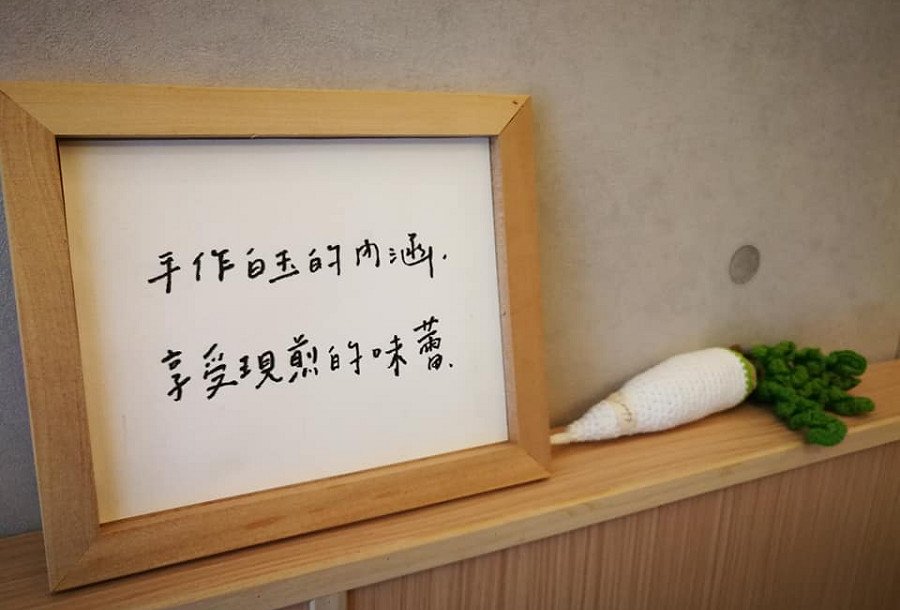 手作白玉的內涵.
享受現煎的味蕾.